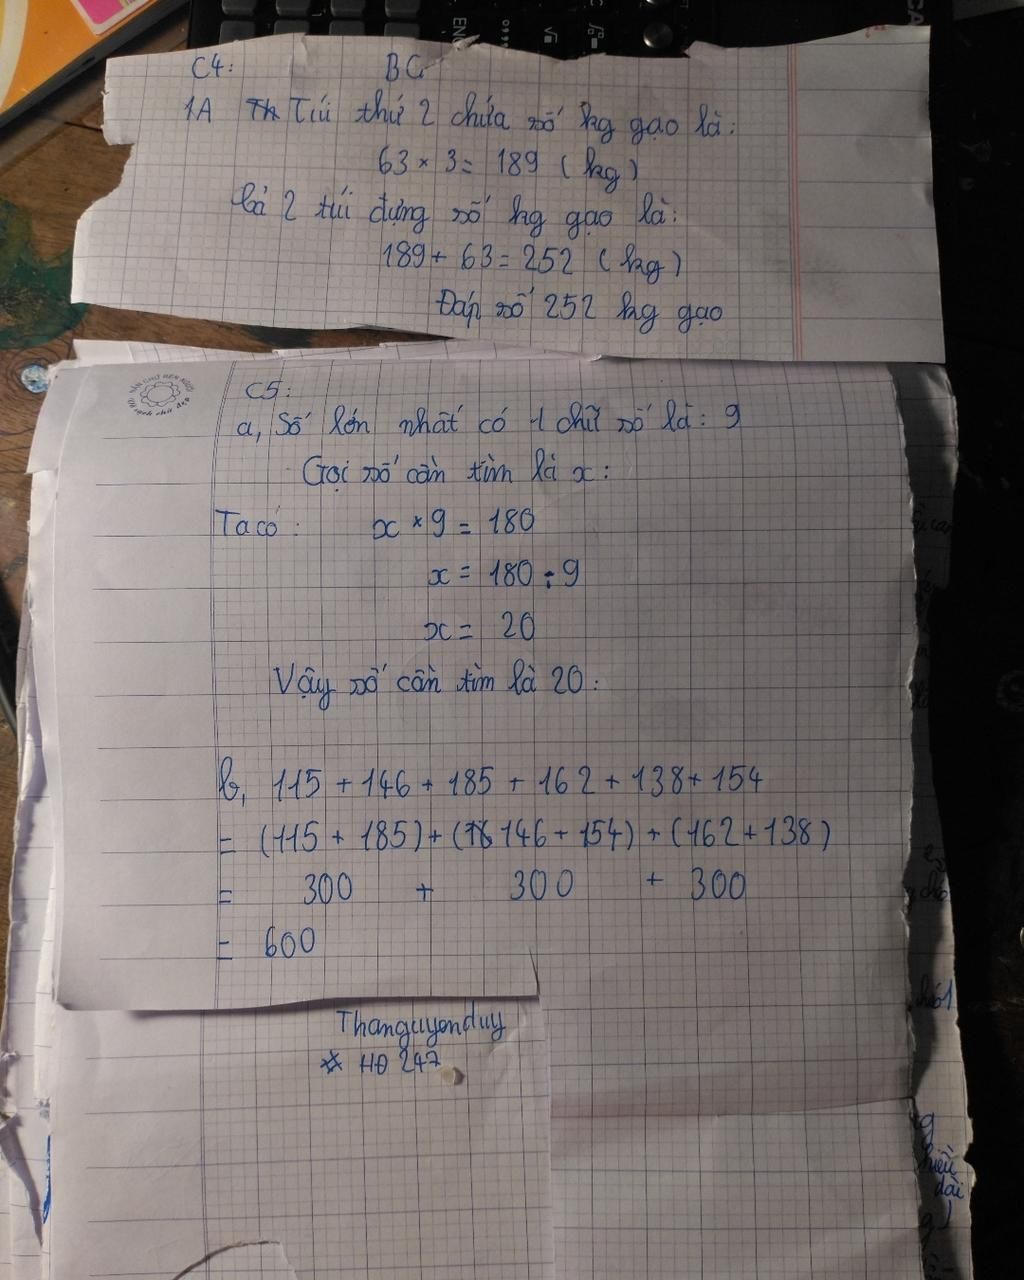 C4: BG
1A Th Túi thứ 2 chứa số kg gạo là:
63 × 3 = 189 (kg)
Cả 2 túi đựng số kg gạo là:
189 + 63 = 252 (kg)
Đáp số 252 kg gạo
C5:
a, Số lớn nhất có 1 chữ số là: 9
Gọi số cần tìm là x:
Ta có: x × 9 = 180
x = 180 : 9
x = 20
Vậy số cần tìm là 20:
b, 115 + 146 + 185 + 162 + 138 + 154
= (115 + 185) + (16 146 + 154) + (162 + 138)
= 300 + 300 + 300
= 600
Thanguyenduy
* HĐ 247
hiều
dài